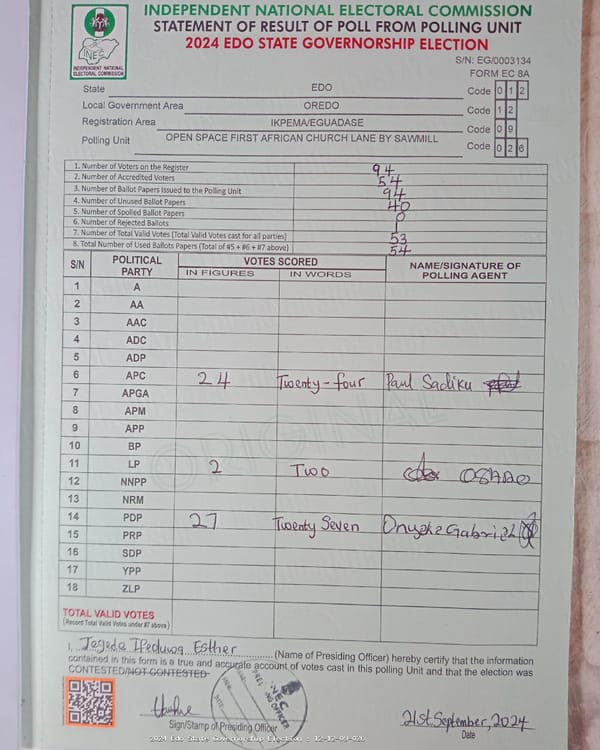 INDEPENDENT NATIONAL ELECTORAL COMMISSION
STATEMENT OF RESULT OF POLL FROM POLLING UNIT
2024 EDO STATE GOVERNORSHIP ELECTION
INEC
INDEPENDENT NATIONAL
ELECTORAL COMMISSION
S/N: EG/0003134
FORM EC 8A
State EDO Code 0 1 2
Local Government Area OREDO Code 1 2
Registration Area IKPEMA/EGUADASE Code 0 9
Polling Unit OPEN SPACE FIRST AFRICAN CHURCH LANE BY SAWMILL Code 0 2 6
1. Number of Voters on the Register 94
2. Number of Accredited Voters 54
3. Number of Ballot Papers Issued to the Polling Unit 94
4. Number of Unused Ballot Papers 40
5. Number of Spoiled Ballot Papers 0
6. Number of Rejected Ballots 1
7. Number of Total Valid Votes (Total Valid Votes cast for all parties) 53
8. Total Number of Used Ballots Papers (Total of #5 + #6 + #7 above) 54
S/N POLITICAL PARTY VOTES SCORED NAME/SIGNATURE OF POLLING AGENT
IN FIGURES IN WORDS
1 A
2 AA
3 AAC
4 ADC
5 ADP
6 APC 24 Twenty-four Paul Sadiku
7 APGA
8 APM
9 APP
10 BP
11 LP 2 Two
12 NNPP
13 NRM
14 PDP 27 Twenty Seven Gabriel
15 PRP
16 SDP
17 YPP
18 ZLP
ORIGINAL
TOTAL VALID VOTES
(Record Total Valid Votes under #7 above)
I, Jegede Ifeduwa Esther (Name of Presiding Officer) hereby certify that the information
contained in this form is a true and accurate account of votes cast in this polling Unit and that the election was
CONTESTED/NOT CONTESTED
INEC
Sign/Stamp of Presiding Officer
21st September, 2024
Date
2024 Edo State Governorship Election : 12-12-09-026